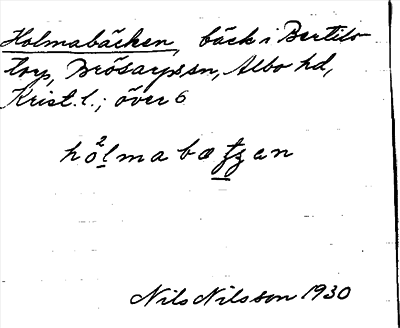 Holmabäcken, bäck i Bertils-
torp, Brösarps sn, Albo hd,
Krist. l.; över 6
hö²lmabæʈʂan
Nils Nilsson 1930